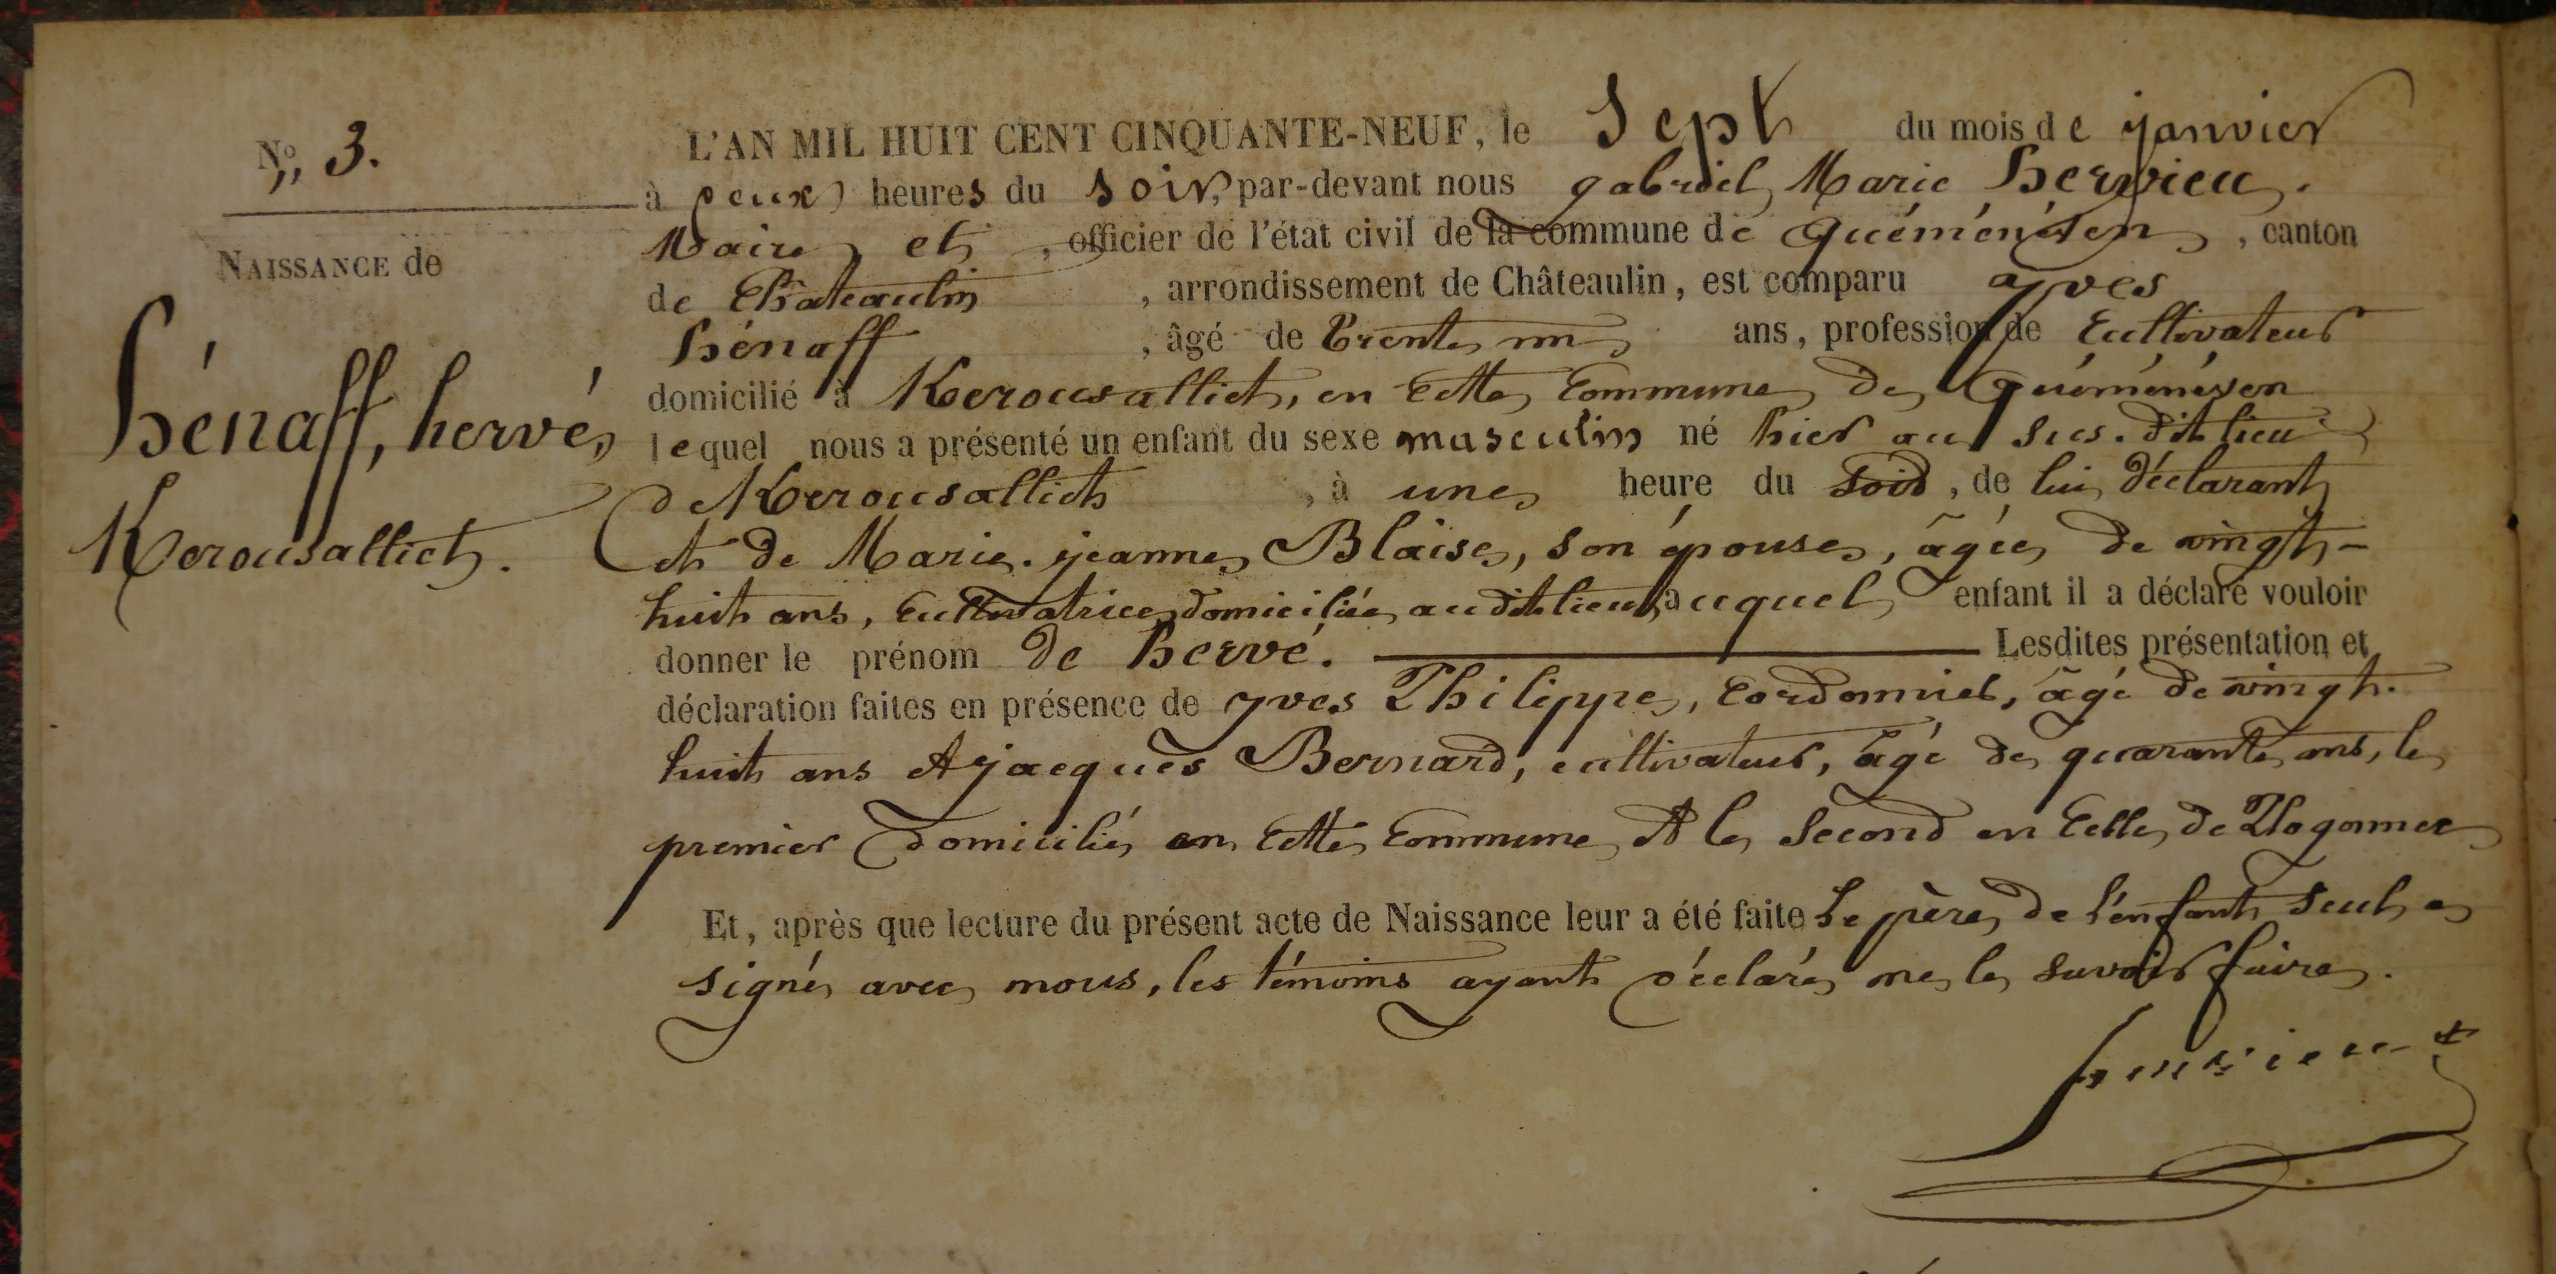 N° 3.
NAISSANCE de
hénaff, hervé,
Kerousallict.
L'AN MIL HUIT CENT CINQUANTE-NEUF, le Sept du mois de janvier
à deux heures du soir, par-devant nous gabriel Marie hervieu.
Maire et , officier de l'état civil de la commune de Quéménéven , canton
de Châteaulin , arrondissement de Châteaulin, est comparu yves
hénaff , âgé de trente un ans, profession de Cultivateur
domicilié à Kerousallict, en cette Commune de Quéménéven
lequel nous a présenté un enfant du sexe masculin né hier au sus-dit lieu
de Kerousallict , à une heure du soir, de lui déclarant
et de Marie-jeanne Blaise, son épouse, âgée de vingt-
huit ans, Cultivatrice, domiciliée au dit lieu, auquel enfant il a déclaré vouloir
donner le prénom de hervé. Lesdites présentation et
déclaration faites en présence de yves Philippe, Cordonnier, âgé de vingt-
huit ans et jacques Bernard, cultivateur, âgé de quarante ans, le
premier domicilié en cette Commune et le second en celle de Plogonnec
Et, après que lecture du présent acte de Naissance leur a été faite le père de l'enfant seul a
signé avec nous, les témoins ayant déclaré ne le savoir faire.
hervieu